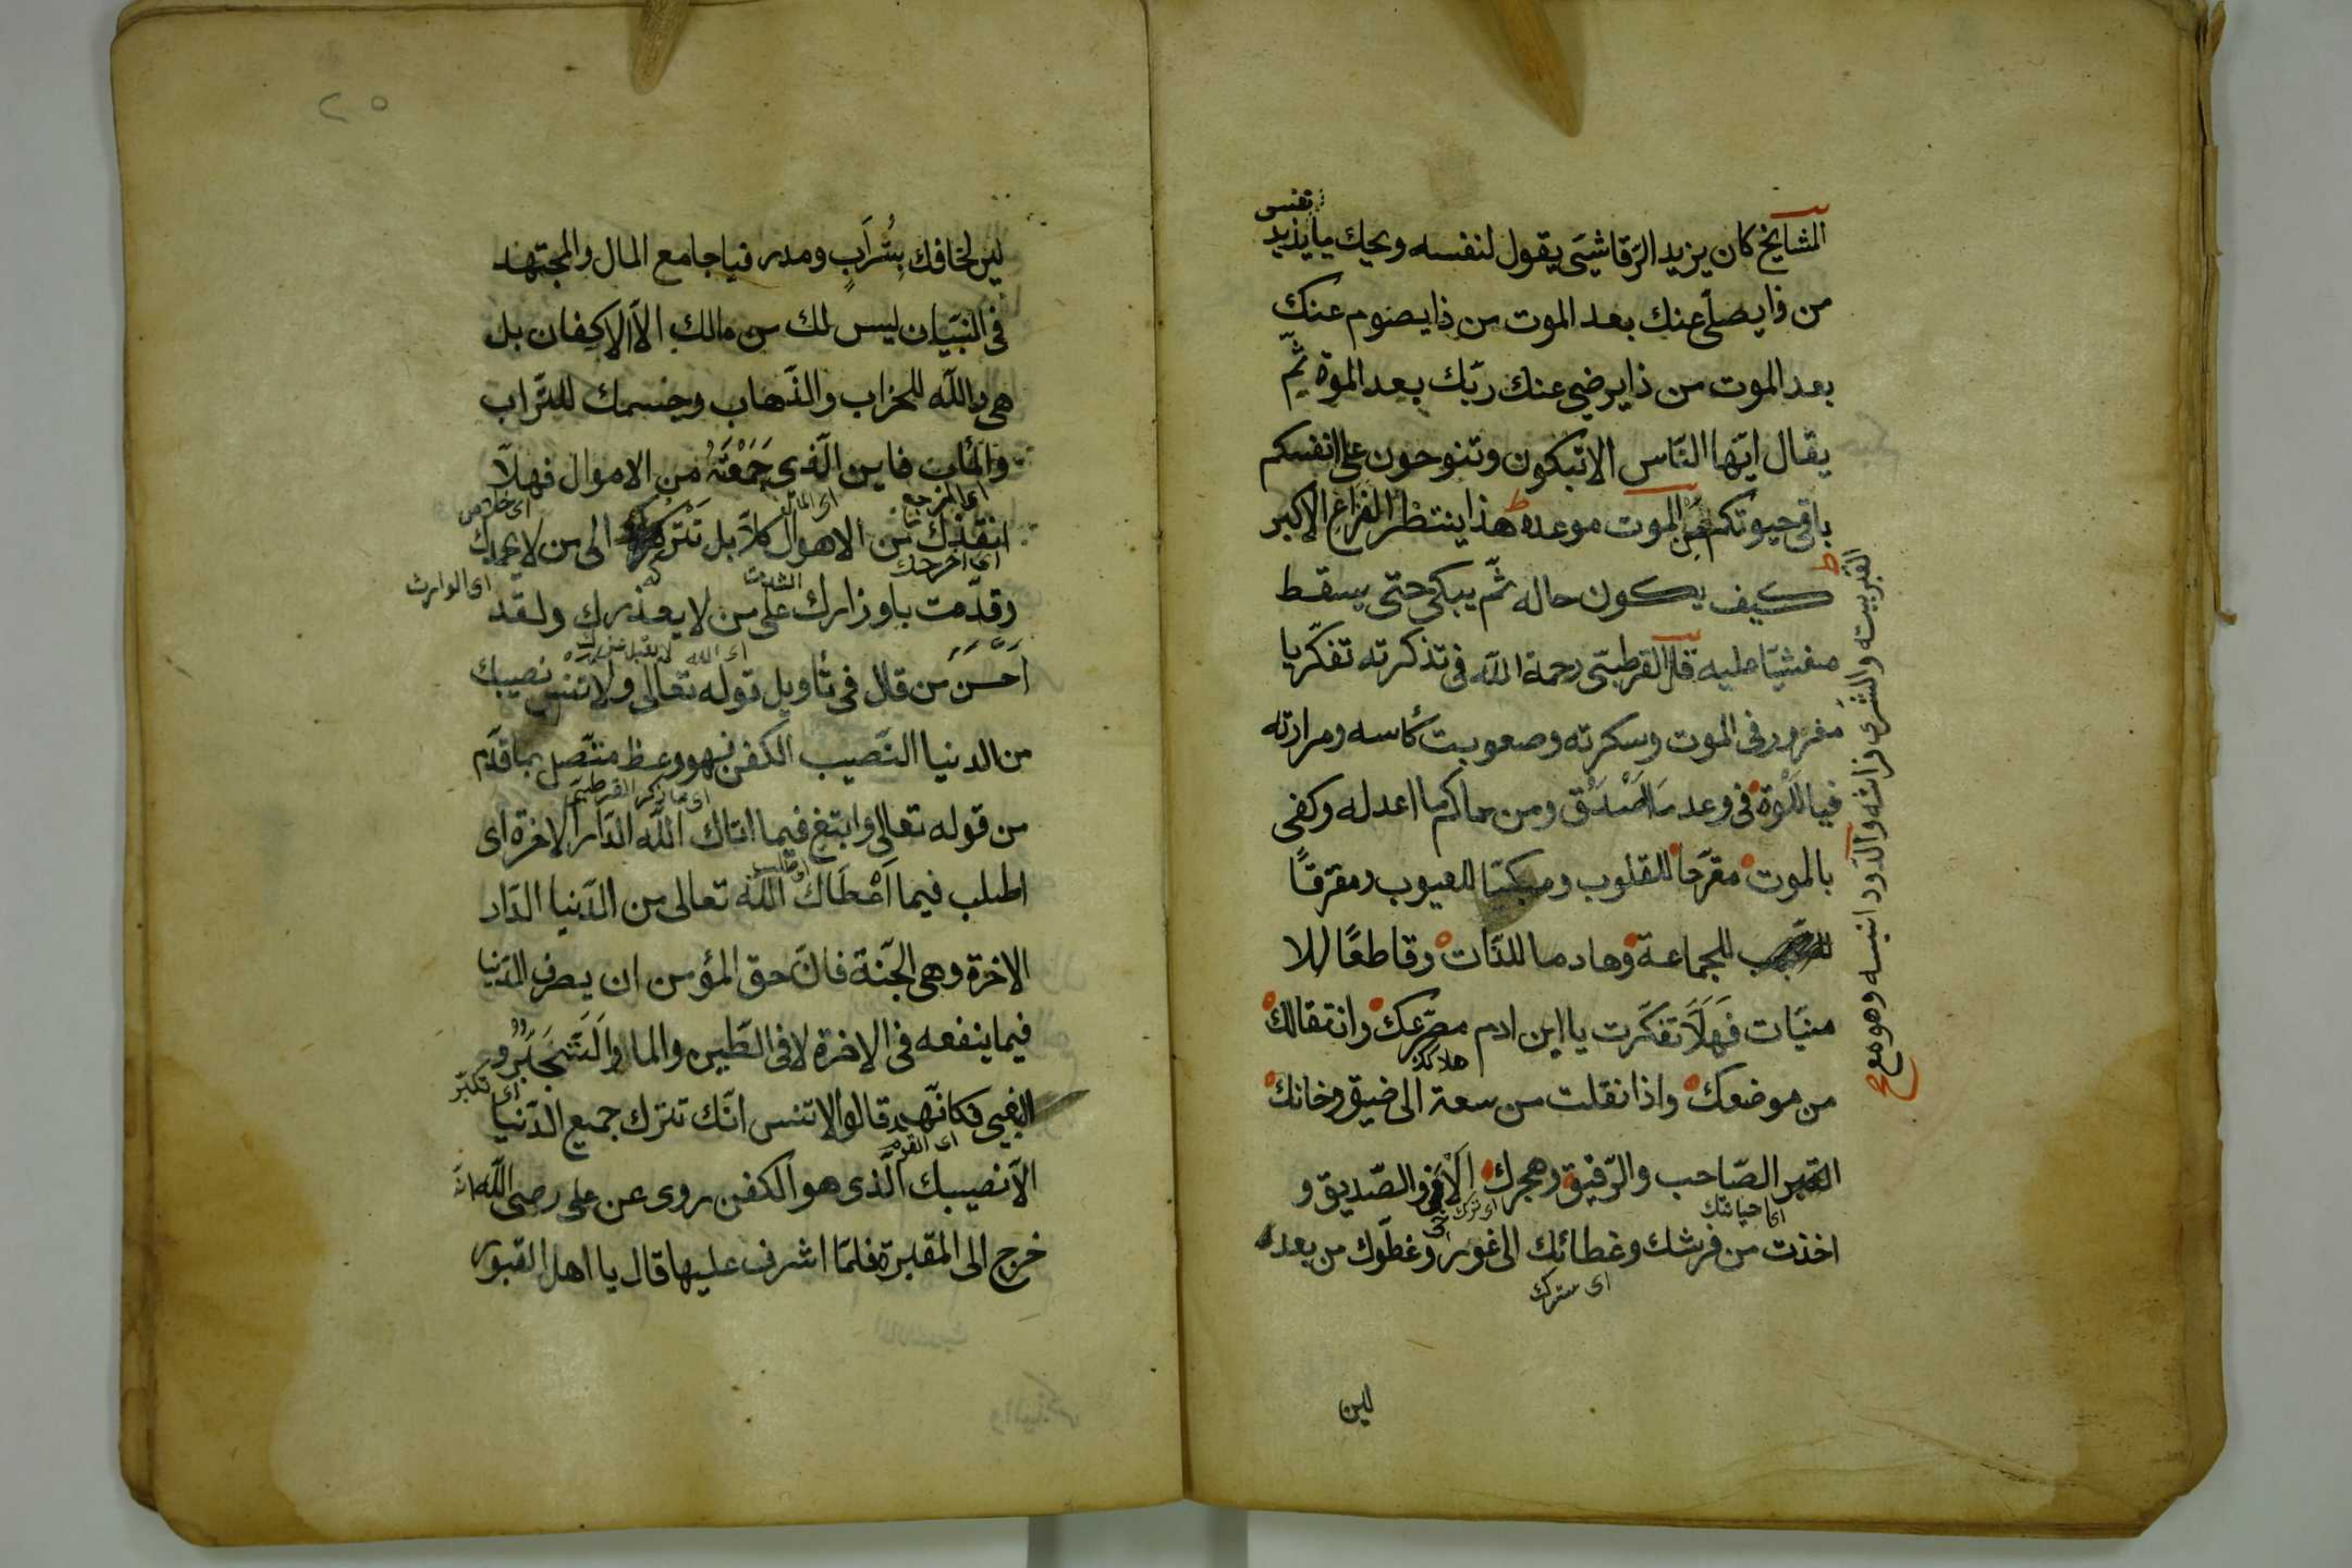 المشايخ كان يزيد الرّقاشيّ يقول لنفسه ويحك يا يزيد
من ذا يصلّى عنك بعد الموت من ذا يصوم عنك
بعد الموت من ذا يرضى عنك ربّك بعد الموة ثمّ
يقال ايّها النّاس الا تبكون وتنوحون على انفسكم
باقى حيوتكم من الموت موعده هذا ينتظر الفزاع الاكبر
كيف يكون حاله ثمّ يبكى حتى يسقط
مغشيّا عليه قال القرطبىّ رحمة الله فى تذكرته تفكّر يا
مغرور فى الموت وسكرته وصعوبت كأسه ومرارته
فيا للموة فى وعد ما اصدق ومن حاكم ما اعدله وكفى
بالموت مقرّحا للقلوب ومبكيّا للعيوب ومفرّقًا
للجماعة وهادما للذّات وقاطعًا للا
منيّات فهلّا تفكّرت يا ابن ادم مصرعك وانتقالك
هلاكك
من موضعك واذا نقلت من سعة الى ضيق وخانك
الصّاحب والرّفيق وهجرك الاخ والصّديق و
اى ترك
اخذت من فرشك وغطائك الى غور وغطّوك من بعد
اى سترك
لين
القبر بيته والثرى فراشه والدّود انيسه وهو مع
لين لحافك بتراب ومدر فيا جامع المال والمجتهد
فى البنيان ليس لك من مالك الّا الاكفان بل
هى والله للخراب والذّهاب وجسمك للتّراب
والمأب فاين الّذى جمعته من الاموال فهلّا
اى المرجع
اى خلاص
انقذك من الاهوال كلّا بل تتركه الى من لا يحمدك
اى اخرجك
اى الوارث
وقدّمت باوزارك على من لا يعذرك ولقد
اى الله
احسن من قال فى تأويل قوله تعالى ولا تنس نصيبك
من الدنيا النّصيب الكفن فهو وعظ متّصل بما قدّم
اى ما ذكر القرطبىّ
من قوله تعالى وابتغ فيما اتاك الله الدّار الاخرة اى
اطلب فيما اعطاك الله تعالى من الدّنيا الدّار
الاخرة وهى الجنّة فانّ حق المؤمن ان يصرف الدّنيا
فيما ينفعه فى الاخرة لا فى الطّين والماء والتّجبّر و
اى تكبّر
البغى فكانّهم قالوا لا تنس انّك تترك جميع الدّنيا
اى القوم
الّا نصيبك الّذى هو الكفن روى عن على رضى الله انّه
خرج الى المقبرة فلمّا اشرف عليها قال يا اهل القبور